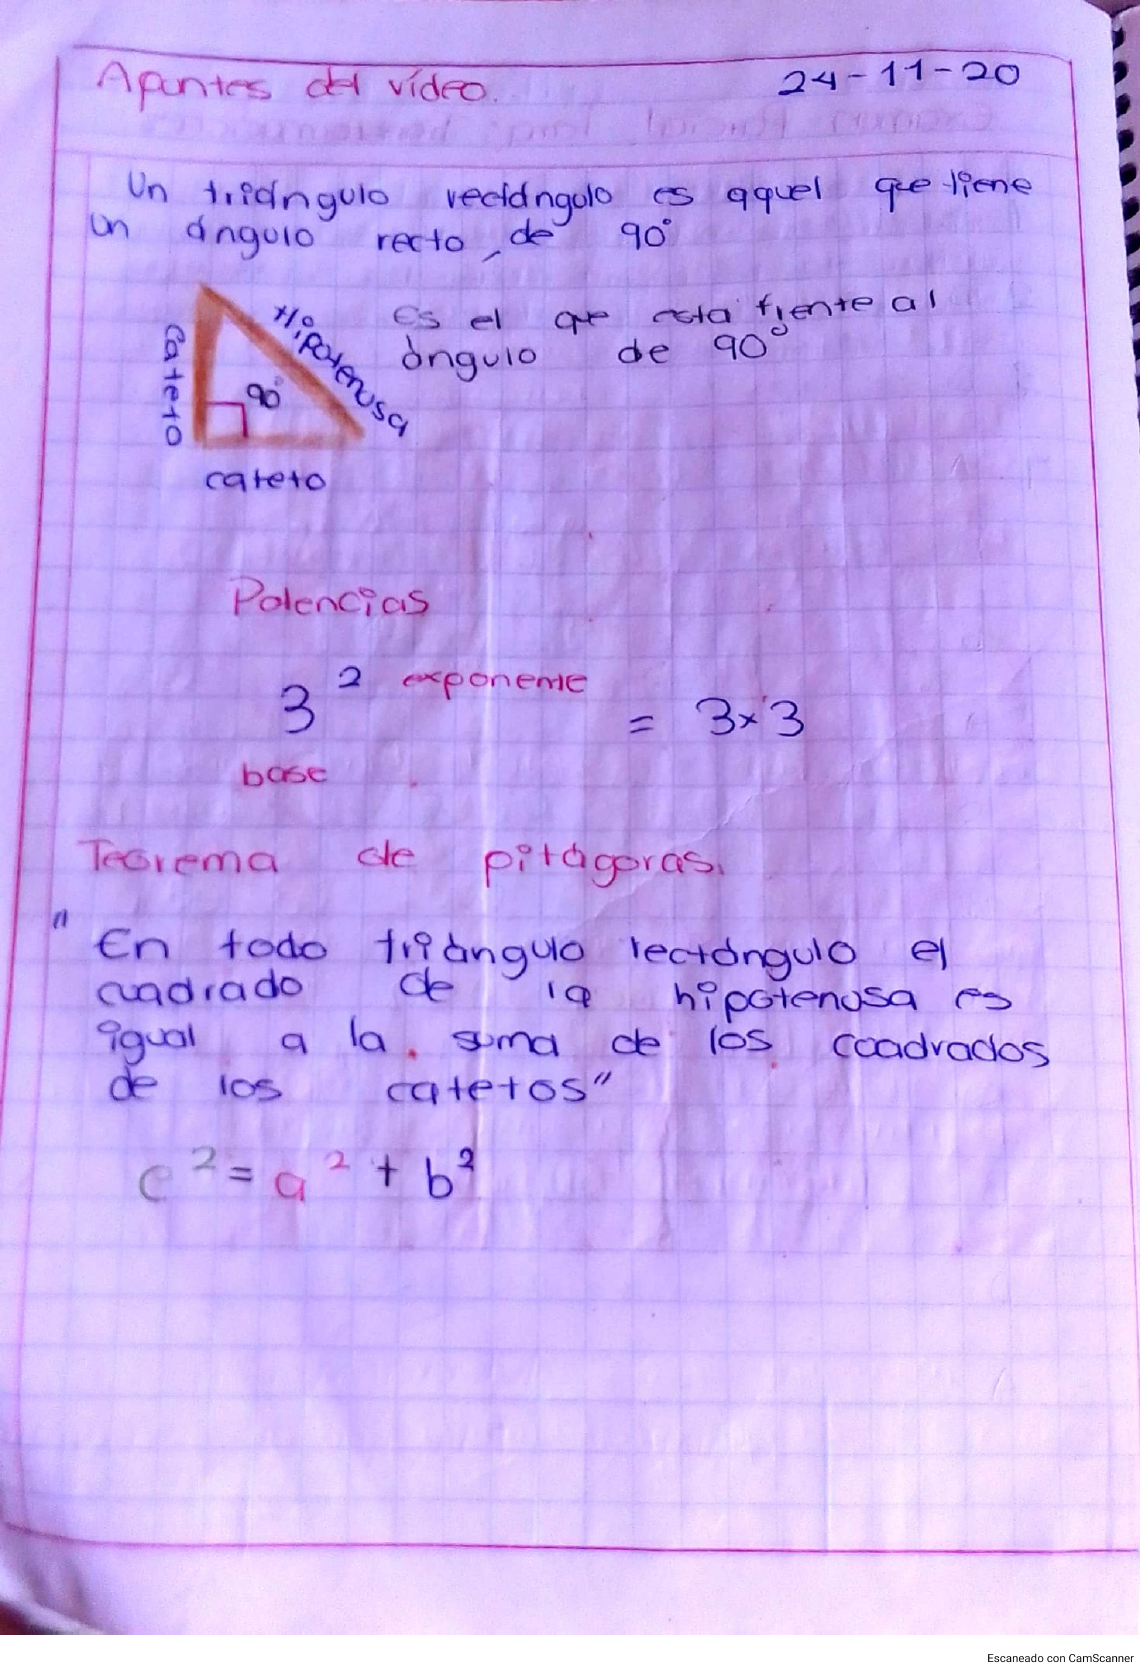 Apuntes del vídeo. 24-11-20
Un triángulo rectángulo es aquel que tiene
un ángulo recto, de 90°
Cateto
Hipotenusa
90°
cateto
Es el que esta frente al
ángulo de 90°
Potencias
3² exponente = 3×3
base
Teorema de pitágoras.
"En todo triángulo rectángulo el
cuadrado de la hipotenusa es
igual a la suma de los cuadrados
de los catetos"
c² = a² + b²
Escaneado con CamScanner